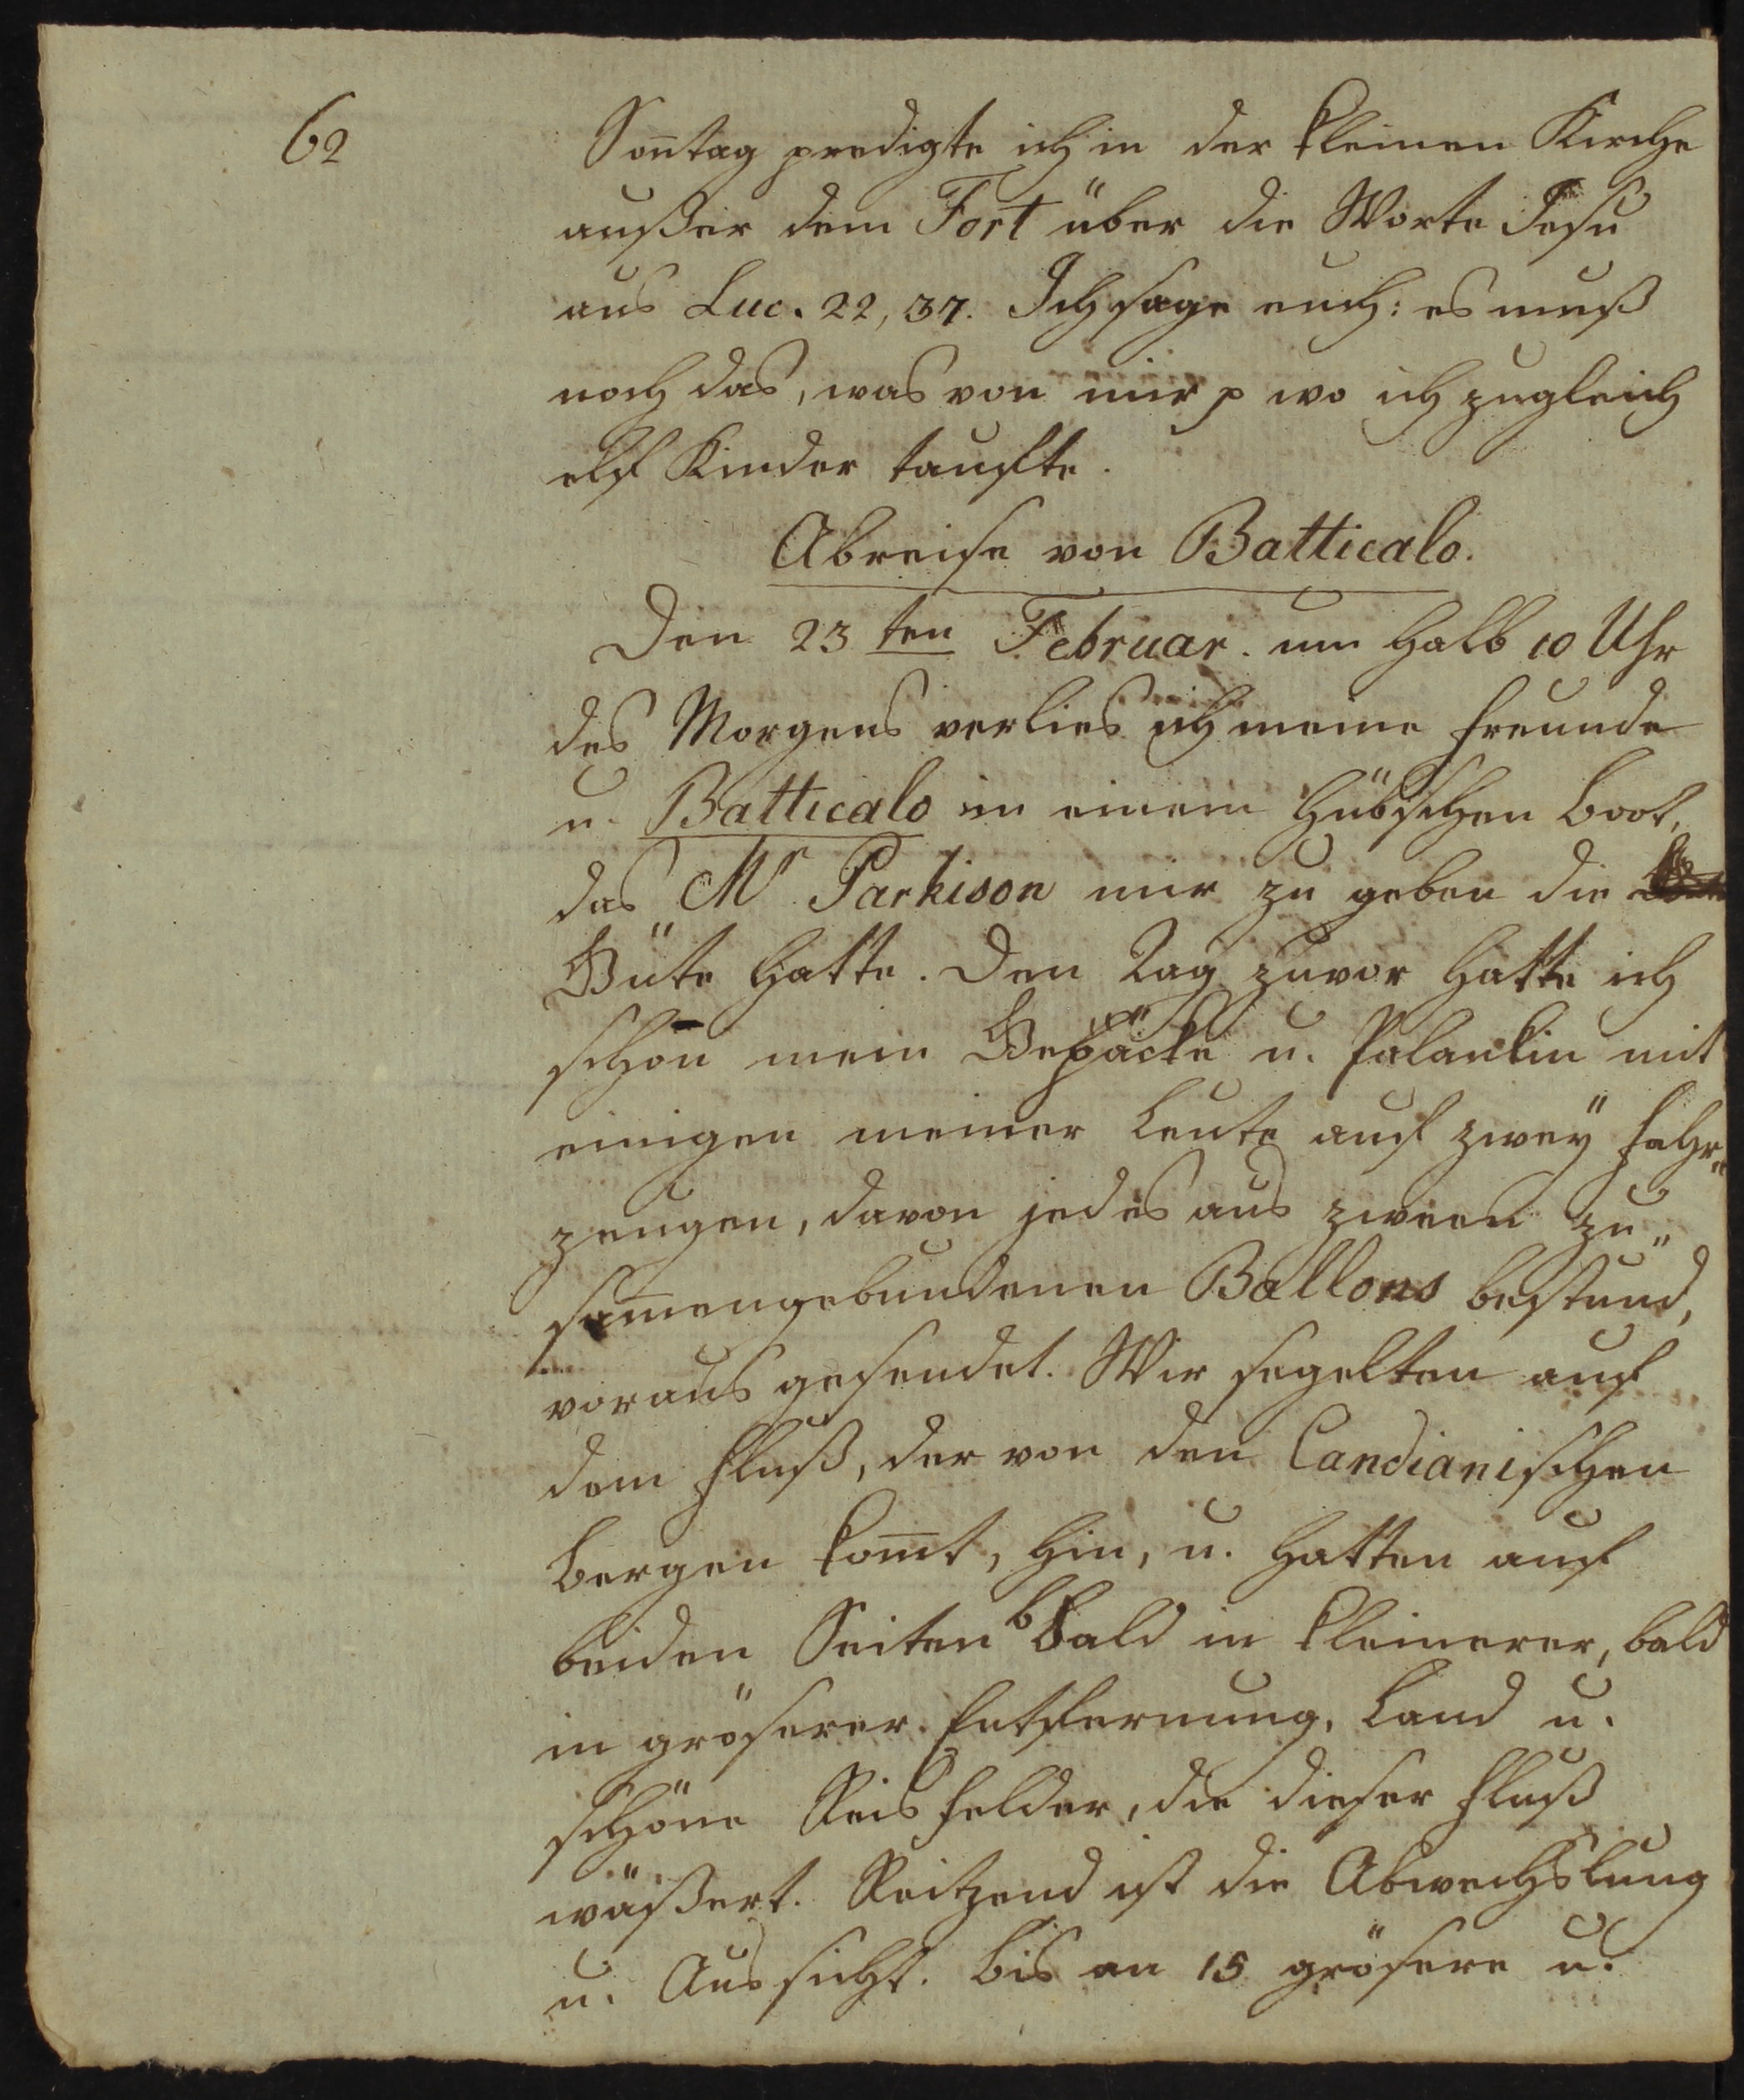 62
Son̄tag predigte ich in der kleinen Kirche
außer dem Fort über die Worte Jesu
aus Luc. 22, 37. Ich sage euch: es muß
noch das, was von mir p wo ich zugleich
elf Kinder taufte.
Abreise von Batticalo.
Den 23ten Februar. um halb 10 Uhr
des Morgens verlies ich meine Freunde
u. Batticalo in einem hübschen Boot,
das Mr Parkison mir zu geben die
Güte hatte. Den Tag zuvor hatte ich
schon mein Gepäcke u. Palankin mit
einigen meiner Leute auf zweÿ Fahr„
zeugen, davon jedes aus zween zu„
sam̄engebundenen Ballons bestund,
voraus gesendet. Wir segelten auf
dem Fluß, der von den Candianischen
Bergen kom̄t, hin, u. hatten auf
beiden Seiten bald in kleinerer, bald
in gröserer Entfernung, Land u.
schöne Reisfelder, die dieser Fluß
wäßert. Reitzend ist die Abwechslung
u. Aussicht. Bis an 15 grösere u.